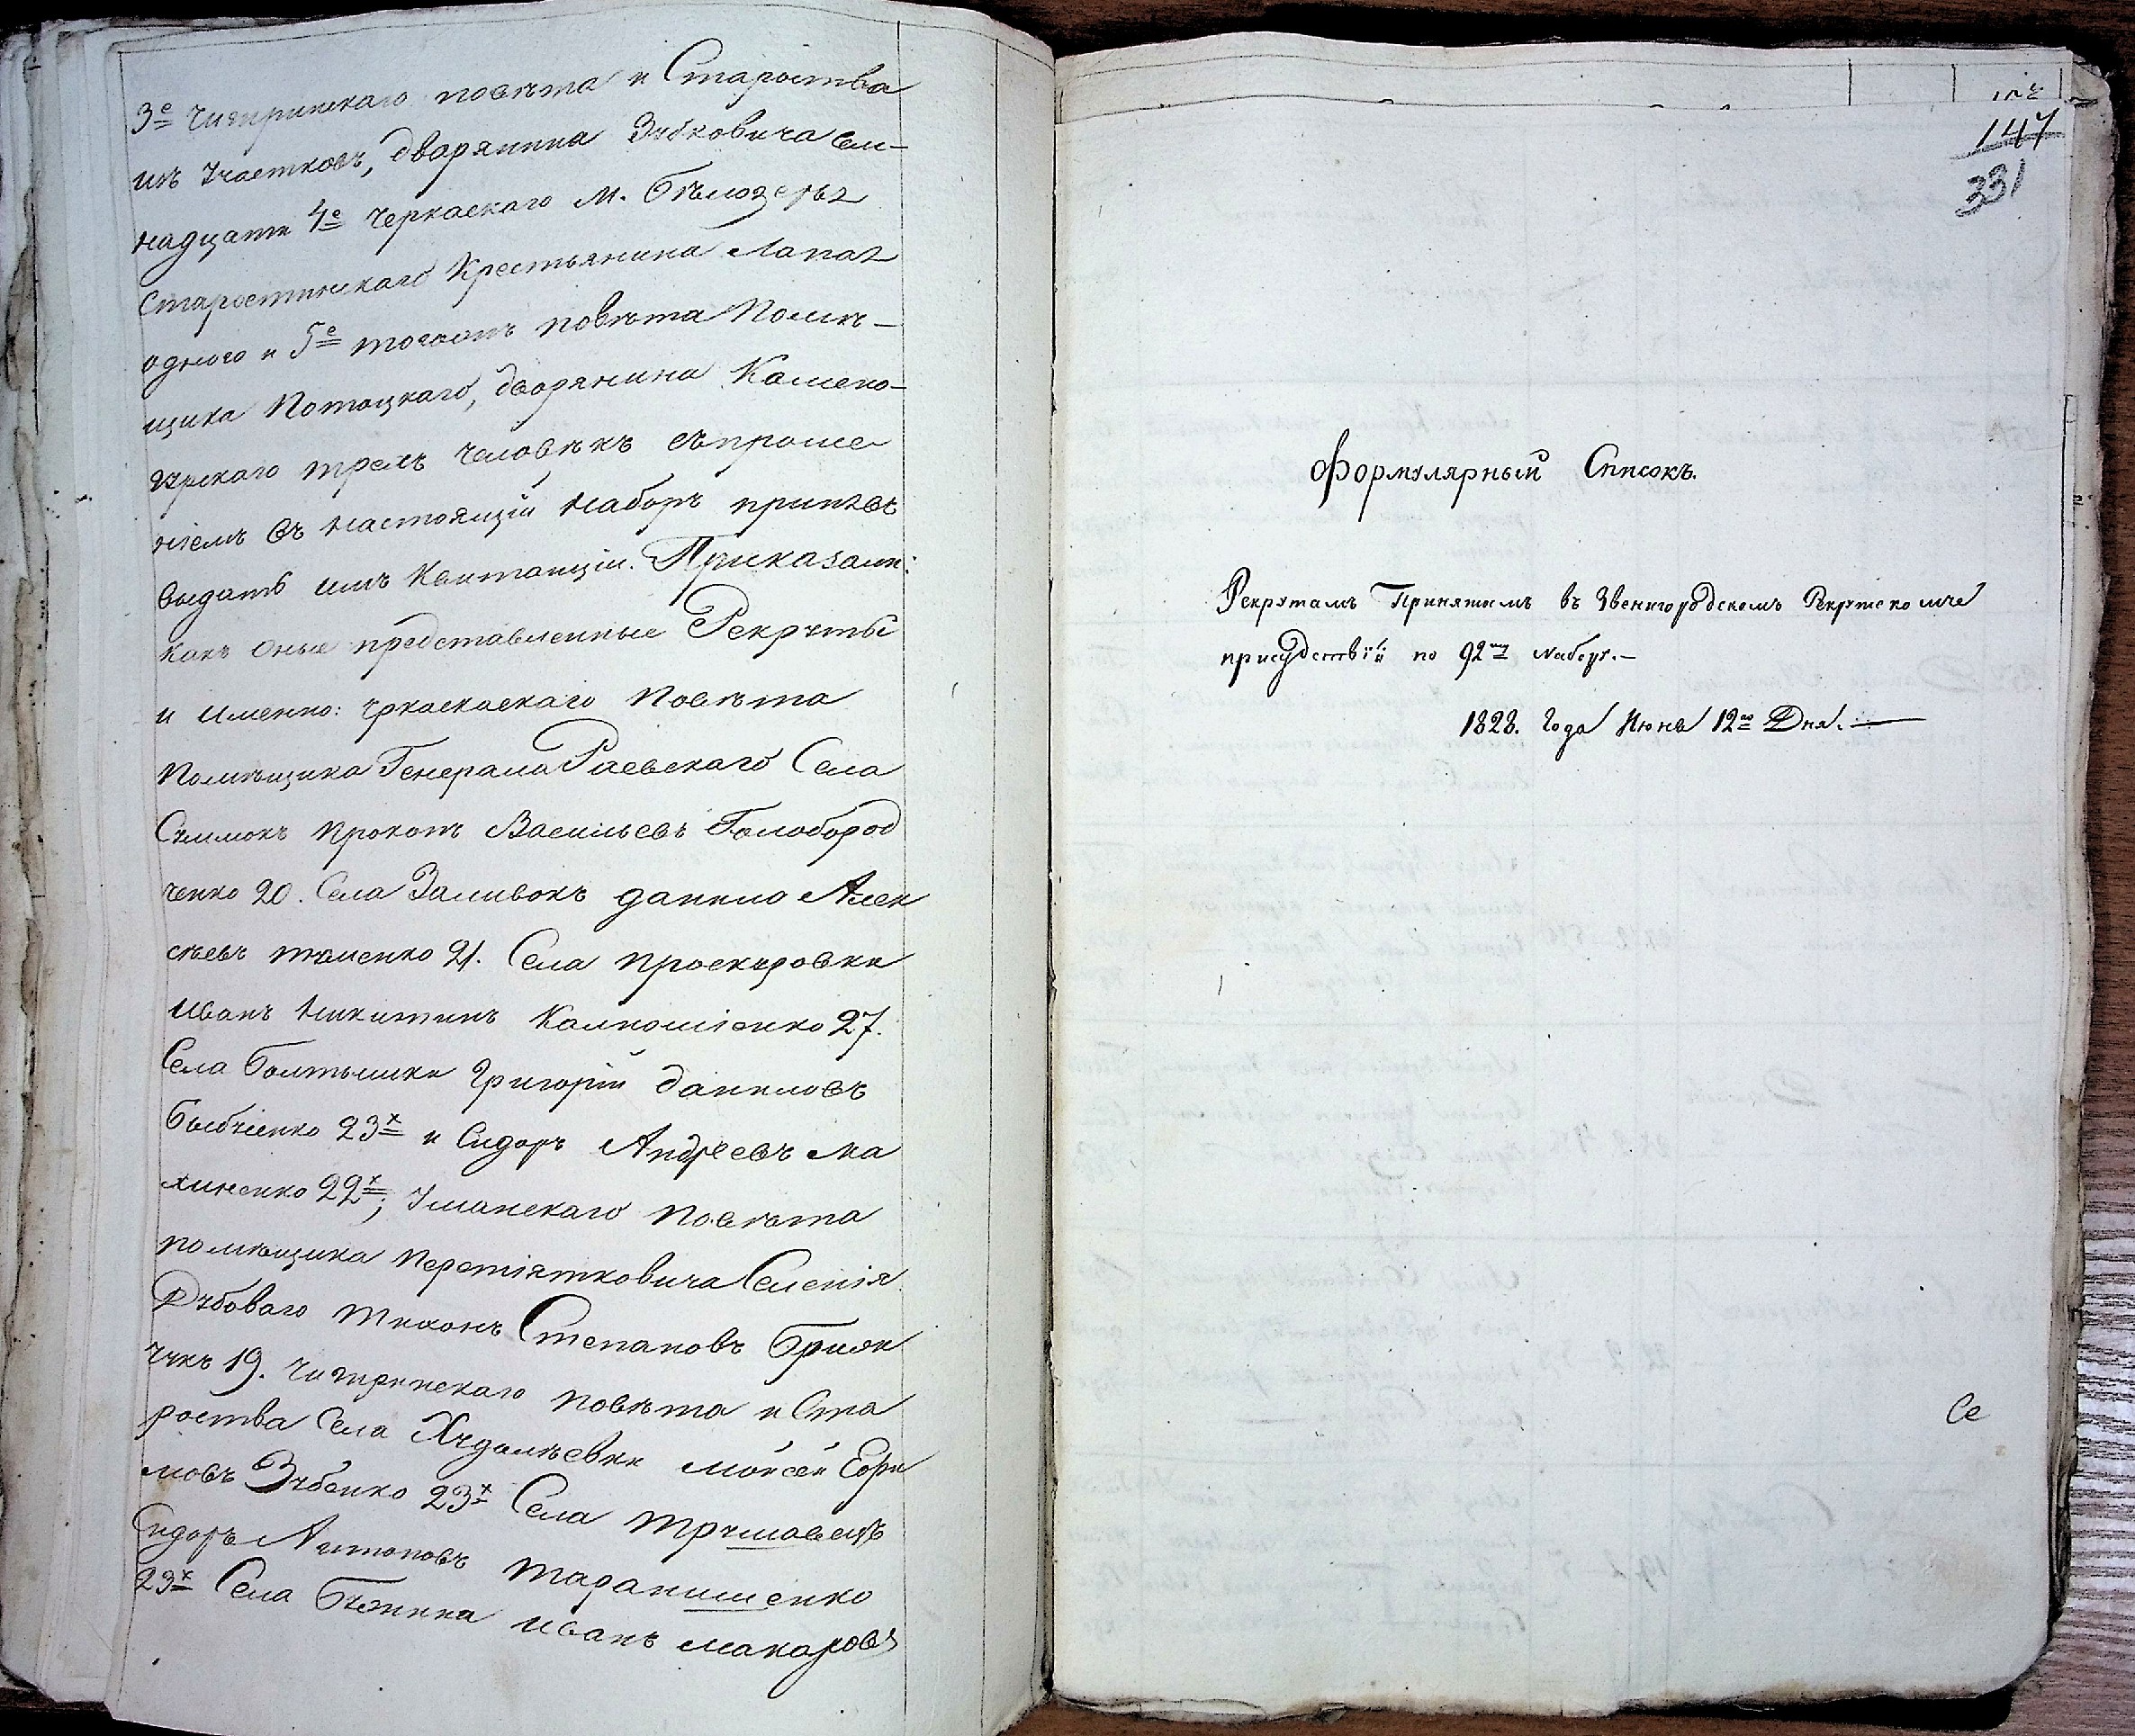 3е Чигиринскаго повѣта и Староства
ихъ Участковъ, дворянина Зубковича сем-
надцати 4е Черкаскаго м. Бѣлозерья
Старостинскаго Крестьянина Лапы
одного и 5е тогожъ повѣта Помѣ-
щика Потоцкаго, дворянина Камено-
гурскаго трехъ человѣкъ съ проше
ніемъ въ настоящій наборъ принять
выдать имъ Квитанціи. Приказали:
какъ оные представленные Рекруты
и именно: Чркаскаскаго повѣта
Помѣщика Генерала Раевскаго Села
Прокопъ Васильевъ Голобород
ченко 20. Села Заливокъ данило Алек
сѣевъ 21. Села проскуровки
Иванъ Никитинъ 27.
Села Болтышки Григорій даниловъ
23х и Сидоръ Андреевъ Ма
хиненко 22х; Уманскаго повѣта
помѣщика Перетятковича Селенія
Дубоваго Тихонъ Степановъ
чукъ 19. Чигринскаго повѣта и Ста
роства Села Худолѣевки Мойсей Ефи
мовъ Зубенко 23х Села
Сидоръ Антоновъ
23х Села Иванъ Макаровъ
147
331
Формулярный Списокъ.
Рекрутамъ Принятымъ въ Звенигородскомъ Рекрутскомъ
присудствіи по 92му набору.—
1828. Года Июня 12го Дня.—
Се